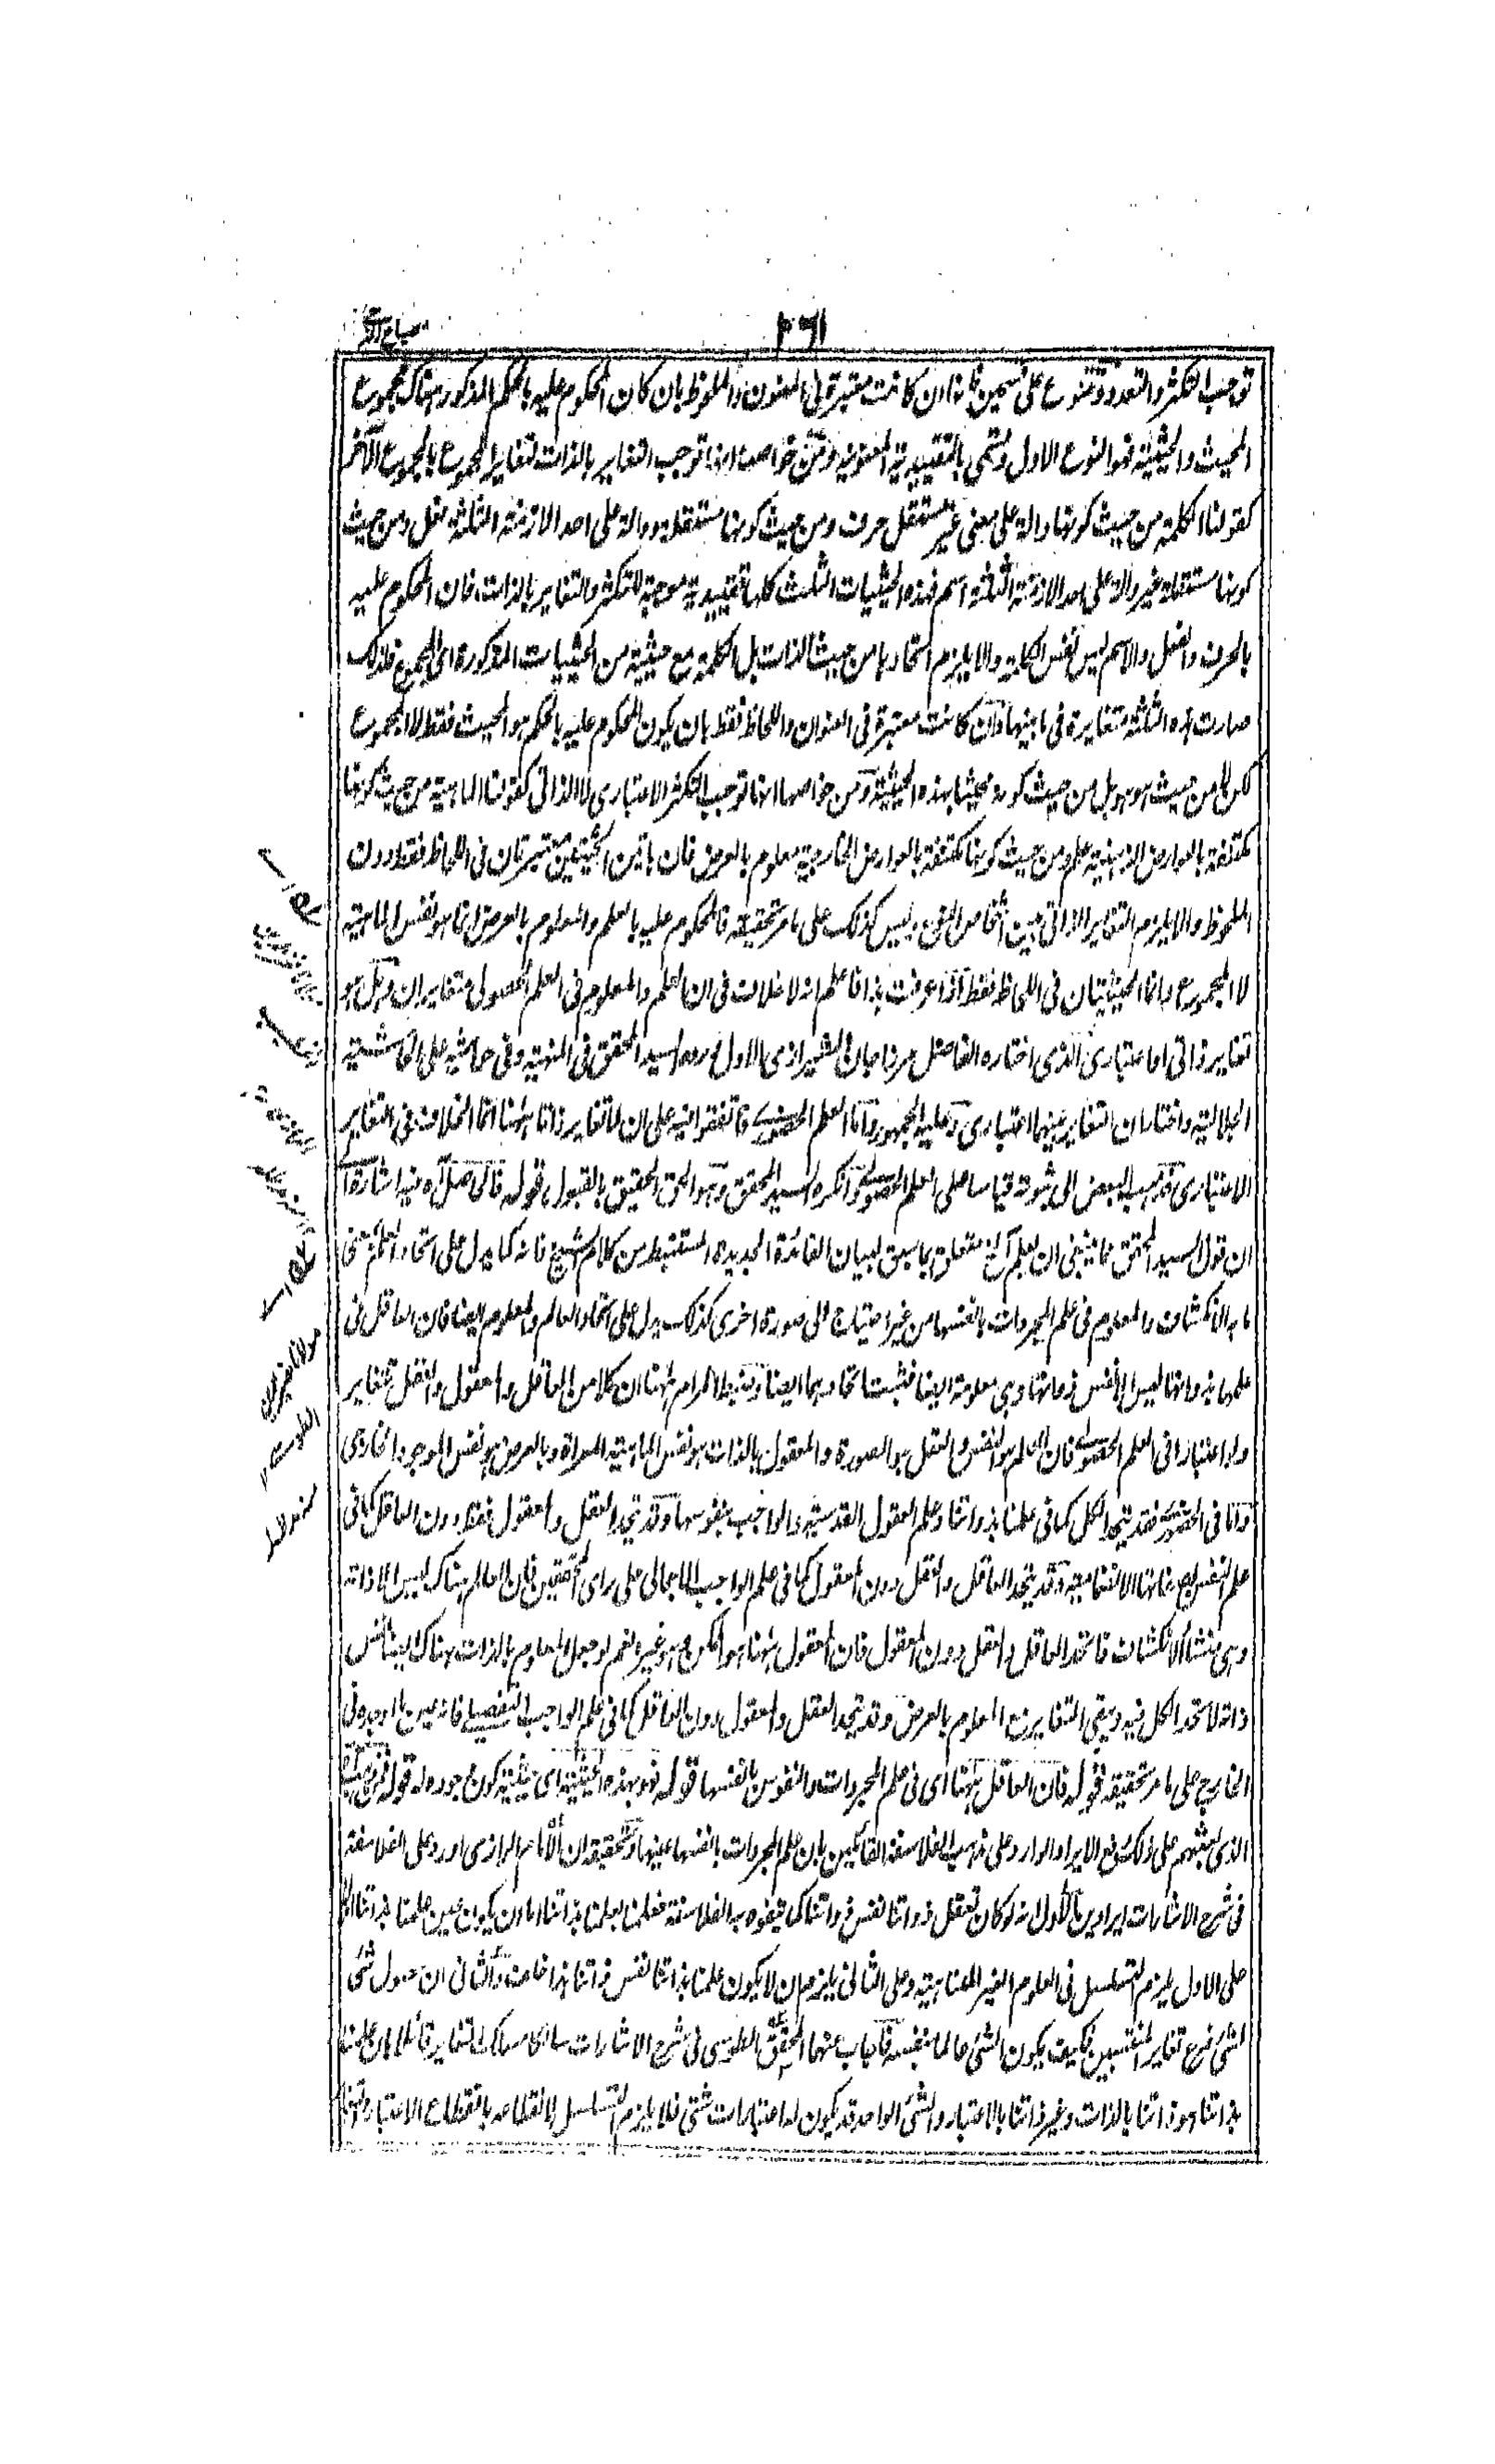 توجب التكثر والتعدد وتتنوع على قسمين فانها ان كانت معتبرة فى المعنون والملحوظ بان كان المحكوم عليه بالحكم المذكور هناك مجموع
المحيث والحيثية فهو النوع الاول وتسمى بالتقييدية المعنونية ومن خواصها انها توجب التغاير بالذات لتغاير المجموع بالمجموع الآخر
كقولنا الكلمة من حيث كونها دالة على معنى غير مستقل حرف ومن حيث كونها مستقلة ودالة على احد الازمنة الثلثة فعل ومن حيث
كونها مستقلة غير دالة على احد الازمنة الثلثة اسم فهذه الحيثيات الثلث كلها تقييدية موجبة للتكثر والتغاير بالذات فان المحكوم عليه
بالحرف والفعل والاسم ليس نفس الكلمة والا يلزم اتحادها من حيث الذات بل الكلمة مع حيثية من الحيثيات المذكورة اى المجموع فلذلك
صارت هذه الثلثة متغايرة فى ما بينها وان كانت معتبرة فى العنوان واللحاظ فقط بان يكون المحكوم عليه بالحكم هو المحيث فقط لا المجموع
لكن لا من حيث هو هو بل من حيث كونه محيثا بهذه الحيثية ومن خواصها انها توجب التكثر الاعتبارى لا الذاتى كقولنا الماهية من حيث كونها
مكتنفة بالعوارض الذهنية علم ومن حيث كونها مكتنفة بالعوارض الخارجية معلوم بالعرض فان هاتين الحيثيتين معتبرتان فى اللحاظ فقط دون
الملحوظ والا يلزم التغاير الذاتى بين وليس كذلك على ما مر تحقيقه فالمحكوم عليه بالعلم والمعلوم بالعرض انما هو نفس الماهية
لا المجموع وانما الحيثيتان فى اللحاظ فقط اذا عرفت هذا فاعلم انه لا خلاف فى ان العلم والمعلوم فى العلم الحصولى متغايران وهل هو
تغاير ذاتى او اعتبارى الذى اختاره الفاضل مرزا جان الشيرازى الاول ورده السيد المحقق فى المنهية وفى حاشيته على الحاشية
الجلالية واختار ان التغاير بينهما اعتبارى وعليه الجمهور واما العلم الحضورى فاتفقوا فيه على ان لا تغاير ذاتا ههنا انما الخلاف فى التغاير
الاعتبارى فذهب البعض الى ثبوته قياسا على العلم الحصولى وانكره السيد المحقق وهو الحق الحقيق بالقبول قوله فالحاصل آه فيه اشارة الى
ان قول السيد المحقق مما ينبغى ان يعلم آخ متعلق بما سبق لبيان الفائدة الجديدة المستنبطة من كلام الشيخ فانه كما يدل على اتحاد العلم بمعنى
ما به الانكشاف والمعلوم فى علم المجردات بانفسها من غير احتياج الى صورة اخرى كذلك يدل على اتحاد العالم والمعلوم ايضا فان العاقل فى
علمها بذواتها ليس الا نفس ذواتها وهى معلومة ايضا فثبت اتحادهما ايضا المرام ههنا ان كلا من العاقل والمعقول والعقل يتغاير
ولو اعتبارا فى العلم الحصولى فان العالم هو النفس والعقل هو الصورة والمعقول بالذات هو نفس الماهية المعراة وبالعرض هو نفس الموجود الخارجى
واما فى الحضورى فقد يتحد الكل كما فى علمنا بذواتنا وعلم العقول القدسية والواجب بنفوسها وقد يتحد العقل والمعقول فقط دون العاقل كما فى
علم النفس بصفاتها الانضمامية وقد يتحد العاقل والعقل دون المعقول كما فى علم الواجب الاجمالى على راى المحققين فان العالم هناك ليس الا ذاته
وهى منشأ الانكشاف فاتحد العاقل والعقل دون المعقول فان المعقول ههنا هو الممكن وهو غيره نعم لو جعل المعلوم بالذات هناك ايضا نفس
ذاته لاتحد الكل فيه وبقى التغاير مع المعلوم بالعرض وقد يتحد العقل والمعقول دون العاقل كما فى علم الواجب التفصيلى فانه عين ما اوجده فى
الخارج على ما مر تحقيقه قوله فان العاقل ههنا اى فى علم المجردات والنفوس بانفسها قوله فهو بهذه الحيثية اى حيثية كون وجوده له قوله
الذى يعثهم على ذلك دفع الايراد الوارد على مذهب الفلاسفة القائلين بان علم المجردات بانفسها عينها وتحقيقه ان الامام الرازى اورد على الفلاسفة
فى شرح الاشارات ايرادين الاول انه لو كان تعقل ذواتنا نفس ذواتنا كما تفوه به الفلاسفة فعلمنا بعلمنا بذاتنا اما ان يكون عين علمنا بذاتنا اولا
على الاول يلزم التسلسل فى العلوم الغير المتناهية وعلى الثانى يلزم ان لا يكون علمنا بذاتنا نفس ذاتنا هذا خلف والثانى ان حصول شئ
لشئ فرع تغاير المنتسبين فكيف يكون الشئ عالما بنفسه فاجاب عنهما المحقق الطوسى فى شرح الاشارات سالكا مسلك التغاير قائلا بان علمنا
بذاتنا هو ذاتنا بالذات وغير ذاتنا بالاعتبار والشئ الواحد قد يكون له اعتبارات شتى فلا يلزم التسلسل لانقطاعه بانقطاع الاعتبار